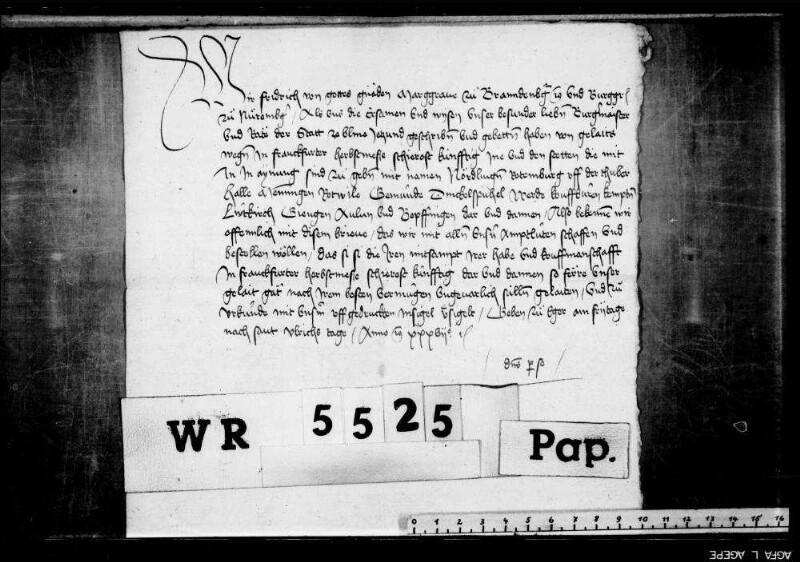 Wir fridrich von gottes gnaden Marggraue zu Branndenbg vnd Burggr
zu Nuremberg / Als vns die Ersamen vnd wysen vnser besunder lieben Burgermaister
vnd Rate der Statt zu vlme yezund geschriben vnd gebetten haben von gelaits
wegen In franckfurter herbstmesse schierost kunfftig Ine vnd den stetten die mit
In In aynung sind zu geben mit namen Nordlingen Rotemburg vff der thuber
halle Memingen Rotwile Gemunde Dinckelspuhel Werde kouffburen kempten
Luwtkirch Giengen Aulun vnd Bopffingen dar vnd dannen / Also bekennen wir
offennlich mit disem brieue / das wir mit allen vnsern Amptluten schaffen vnd
bestellen wollen / das si si die Iren mitsampt Irer habe vnd kouffmanschafft
In franckfurter herbstmesse schierost kunfftig dar vnd dannen so ferre vnser
gelait gat nach Irem besten vermugen vngeuarlich sullen gelaiten / Vnd zu
vrkunde mit vnserm vff gedruckten Insigel versigelt / Geben zu Eger am fritage
nach sant vlrichs tage / Anno xxxvij
WR 5525
Pap.
0 1 2 3 4 5 6 7 8 9 10 11 12 13 14 15 16
AGFA L AGEPE